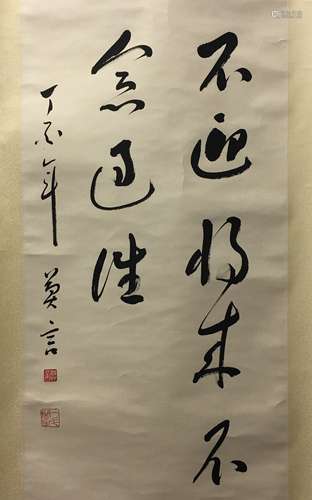 不迎将来不
念过往
丁酉年
莫言